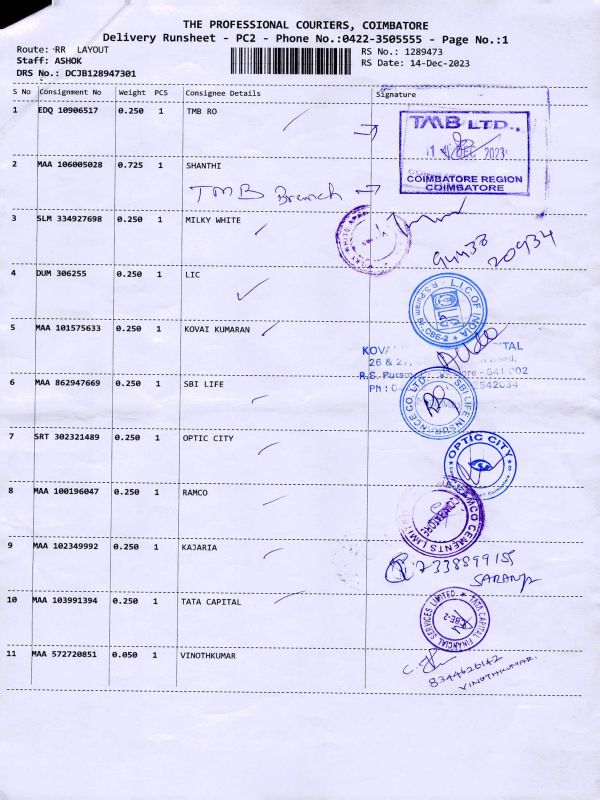 THE PROFESSIONAL COURIERS, COIMBATORE
Delivery Runsheet - PC2 - Phone No.:0422-3505555 - Page No.:1
Route: RR LAYOUT
RS No.: 1289473
Staff: ASHOK
RS Date: 14-Dec-2023
DRS No.: DCJB128947301
S No Consignment No Weight PCS Consignee Details Signature
1 EDQ 10906517 0.250 1 TMB RO
TMB LTD.,
DEC 2023
COIMBATORE REGION
COIMBATORE
2 MAA 106005028 0.725 1 SHANTHI
TMB Branch
3 SLM 334927698 0.250 1 MILKY WHITE
94438 20934
4 DUM 306255 0.250 1 LIC
L.I.C. OF INDIA
R.S.Puram Br. CBE-2
5 MAA 101575633 0.250 1 KOVAI KUMARAN
26 & 27,
R.S. Puram
641 002
Ph : 0
2542034
6 MAA 862947669 0.250 1 SBI LIFE
SBI LIFE INSURANCE CO. LTD.
7 SRT 302321489 0.250 1 OPTIC CITY
OPTIC CITY
8 MAA 100196047 0.250 1 RAMCO
RAMCO CEMENTS LIMITED
COIMBATORE
9 MAA 102349992 0.250 1 KAJARIA
10 MAA 103991394 0.250 1 TATA CAPITAL
TATA CAPITAL FINANCIAL SERVICES LIMITED
CBE-2
11 MAA 572720851 0.050 1 VINOTHKUMAR
8344626142
VINOTHKUMAR.